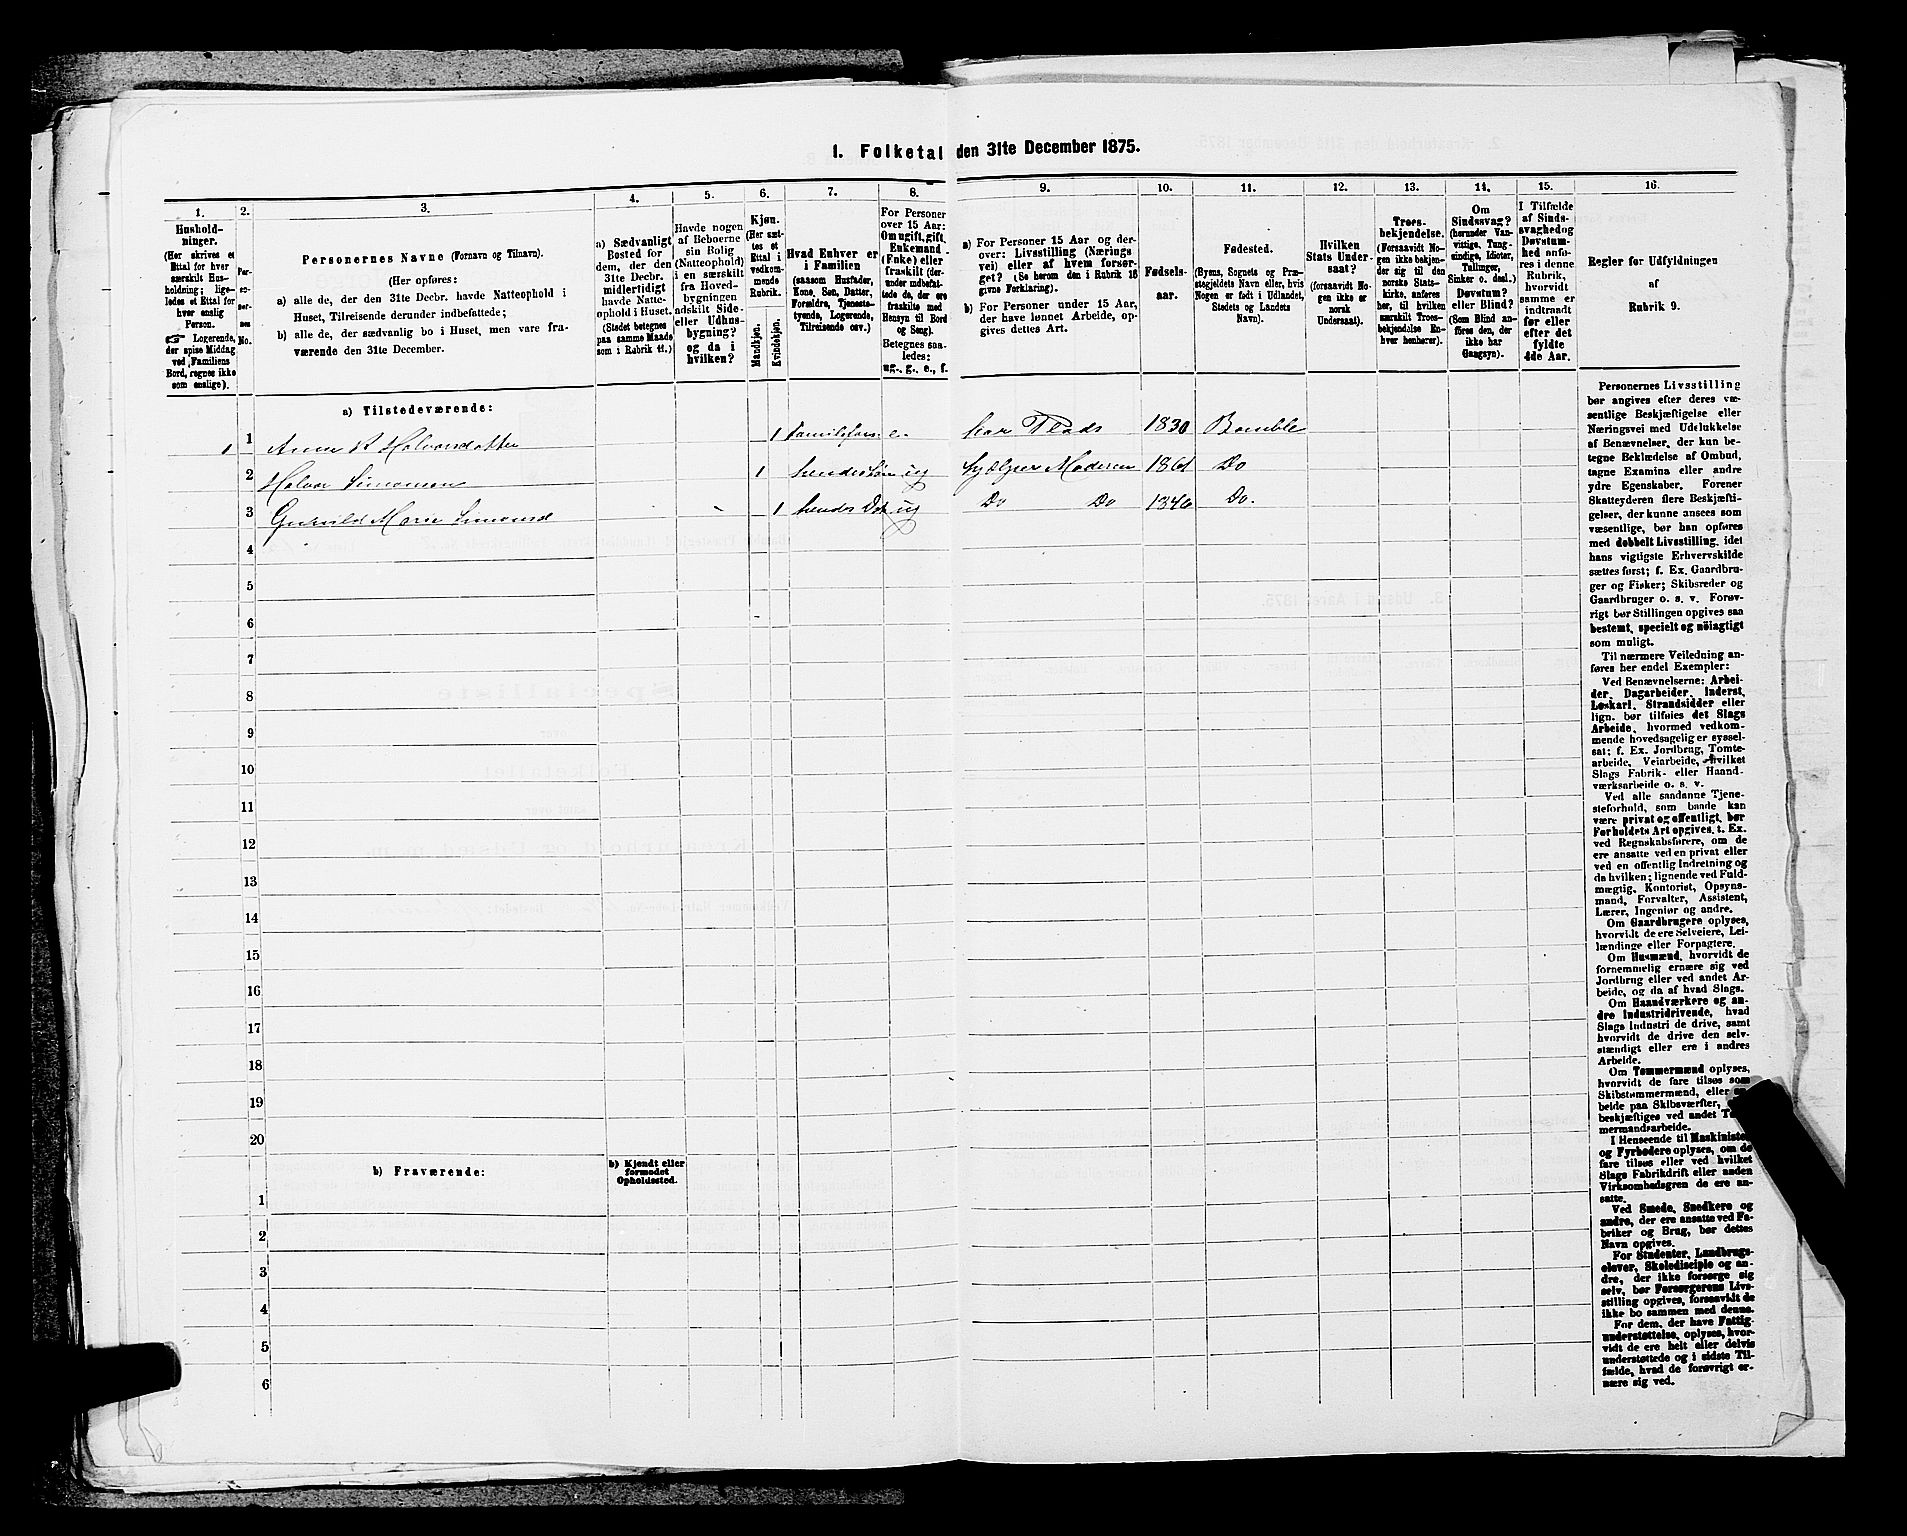 1. Folketal den 31te December 1875.
1.
2.
3.
4.
5.
6.
7.
8.
9.
10.
11.
12.
13.
14.
15.
16.
Hushold-
ninger.
(Her skrives et
Ettal for hver
særskilt Hus-
holdning; lige-
ledes et Ettal for
hver enslig
Person.
☞ Logerende,
der spise Middag
ved Familiens
Bord, regnes ikke
som enslige).
Per-
so-
ner-
nes
No.
Personernes Navne (Fornavn og Tilnavn).
(Her opføres:
a) alle de, der den 31te Decbr. havde Natteophold i
Huset, Tilreisende derunder indbefattede;
b) alle de, der sædvanlig bo i Huset, men vare fra-
værende den 31te December.
a) Sædvanligt
Bosted for
dem, der den
31te Decbr.
midlertidigt
havde Natte-
ophold i Huset.
(Stedet betegnes
paa samme Maade
som i Rubrik 11.)
Havde nogen
af Beboerne
sin Bolig
(Natteophold)
i en særskilt
fra Hoved-
bygningen
adskilt Side-
eller Udhus-
bygning?
og da i
hvilken?
Kjøn.
(Her sæt-
tes et
Ettal i
vedkom-
mende
Rubrik.
Mandkjøn.
Kvindekjøn.
Hvad Enhver er
i Familien
(saasom Husfader,
Kone, Søn, Datter,
Forældre, Tjeneste-
tyende, Logerende,
Tilreisende osv.)
For Personer
over 15 Aar:
Om ugift, gift,
Enkemand
(Enke) eller
fraskilt (der-
under indbefat-
tede de, der ere
fraskilte med
Hensyn til Bord
og Seng).
Betegnes saa-
ledes:
ug., g., e., f.
a) For Personer 15 Aar og der-
over: Livsstilling (Nærings
vei) eller af hvem forsør-
get? (Se herom den i Rubrik 16
givne Forklaring).
b) For Personer under 15 Aar,
der have lønnet Arbeide, op-
gives dettes Art.
Fødsels-
aar.
Fødested.
(Byens, Sognets og Præ-
stegjeldets Navn eller, hvis
Nogen er født i Udlandet,
Stedets og Landets
Navn).
Hvilken
Stats Under-
saat?
(forsaavidt No-
gen ikke er
norsk
Undersaat).
Troes-
bekjendelse.
(Forsaavidt No-
gen ikke bekjen-
der sig til den
norske Stats-
kirke, anføres
her, til hvilken
særskilt Troes-
bekjendelse En-
hver henhører).
Om
Sindssvag?
(herunder Van-
vittige, Tung-
sindige, Idioter,
Tullinger,
Sinker o. desl.)
Døvstum?
eller Blind?
(Som Blind an-
føres den, der
ikke har
Gangsyn).
I Tilfælde
af Sinds-
svaghed og
Døvstum-
hed anfø-
res i denne
Rubrik,
hvorvidt
samme er
indtraadt
før eller
efter det
fyldte
4de Aar.
Regler for Udfyldningen
af
Rubrik 9.
a) Tilstedeværende:
1 1 Anne K Halvorsdatter 1 e. har Plads 1830 Bamble
2 Halvor Simonsen 1 hendes Søn ug hjælper Moderen 1861 Do
3 Gunild Marie Simonsd 1 hendes Dat ug Do Do 1846 Do.
4
5
6
7
8
9
10
11
12
13
14
15
16
17
18
19
20
b) Fraværende:
b) Kjendt eller
formodet
Opholdssted.
1
2
3
4
5
6
Personernes Livsstilling
bør angives efter deres væ-
sentlige Beskjæftigelse eller
Næringsvei med Udelukkelse
af Benævnelser, der kun be-
tegne Beklædelse af Ombud,
tagne Examina eller andre
ydre Egenskaber. Forener
Skatteyderen flere Beskjæfti-
gelser, der kunne ansees som
væsentlige, bør han opføres
med dobbelt Livsstilling, idet
hans vigtigste Erhvervskilde
sættes først; f. Ex. Gaardbru-
ger og Fisker; Skibsreder og
Gaardbruger o. s. v. Forøv-
rigt bør Stillingen opgives saa
bestemt, specielt og nöiagtigt
som muligt.
Til nærmere Veiledning an-
føres her endel Exempler:
Ved Benævnelserne: Arbei-
der, Dagarbeider, Inderst,
Løskarl, Strandsidder eller
lign. bør tilføies det Slags
Arbeide, hvormed vedkom-
mende hovedsagelig er syssel-
sat; f. Ex. Jordbrug, Tomte-
arbeide, Veiarbeide, hvilket
Slags Fabrik- eller Haand-
værksarbeide o. s. v.
Ved alle saadanne Tjene-
steforhold, som baade kan
være privat og offentligt, bør
Forholdets Art opgives, t. Ex.
ved Regnskabsførere, om de
ere ansatte ved en privat eller
ved en offentlig Indretning og
da hvilken; lignende ved Fuld-
mægtig, Kontorist, Opsyns-
mand, Forvalter, Assistent,
Lærer, Ingeniør og andre.
Om Gaardbrugere oplyses,
hvorvidt de ere Selveiere, Lei-
lændinge eller Forpagtere.
Om Husmænd, hvorvidt de
fornemmelig ernære sig ved
Jordbrug eller ved andet Ar-
beide, og da af hvad Slags.
Om Haandværkere og an-
dre Industridrivende, hvad
Slags Industri de drive, samt
hvorvidt de drive den selv-
stændigt eller ere i andres
Arbeide.
Om Tømmermænd oplyses,
hvorvidt de fare tilsøs som
Skibstømmermænd, eller
beide paa Skibsværfter,
beskjæftiges ved andet
mermandsarbeide.
I Henseende til Maskinister
og Fyrbødere oplyses, om de
fare tilsøs eller ved hvilket
Slags Fabrikdrift eller anden
Virksomhedsgren de ere an-
satte.
Ved Smede, Snedkere og
andre, der ere ansatte ved Fa-
briker og Brug, bør dettes
Navn opgives.
For Studenter, Landbrugs-
elever, Skoledisciple og an-
dre, der ikke forsørge sig
selv, bør Forsørgerens Livs-
stilling opgives, forsaavidt de
ikke bo sammen med denne.
For dem, der have Fattig-
understøttelse, oplyses, hvor-
vidt de ere helt eller delvis
understøttede og i sidste Til-
fælde, hvad de forøvrigt er-
nære sig ved.